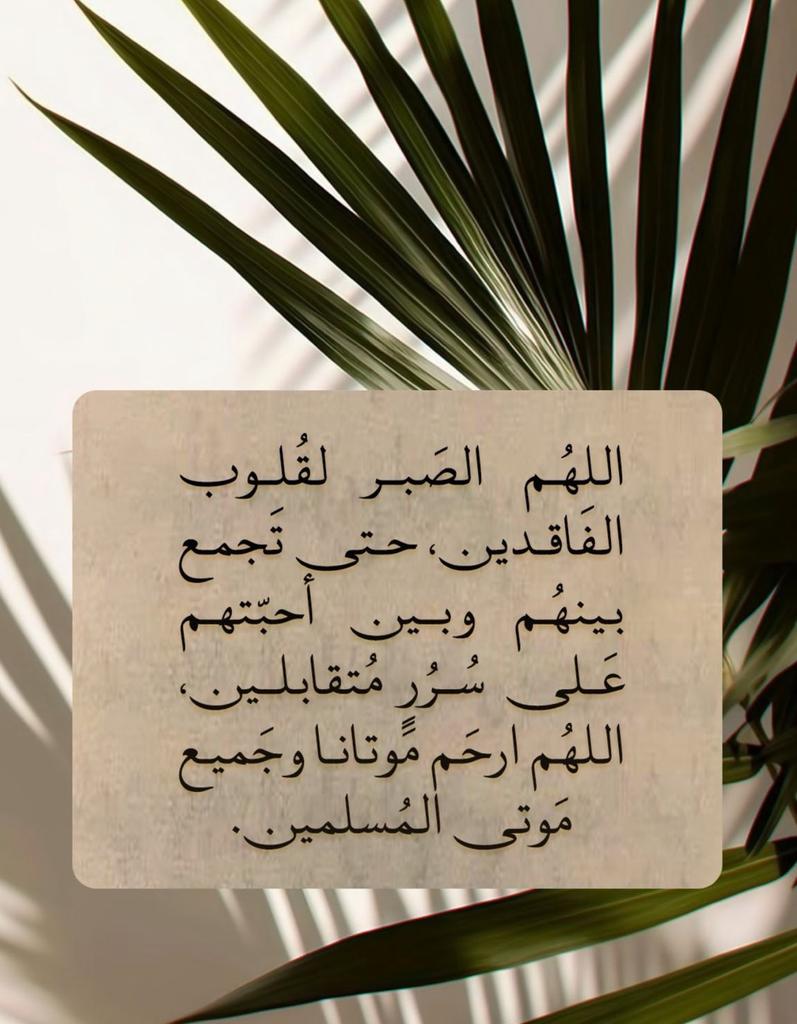 اللهُم الصَبر لقُلوب
الفَاقدين، حتى تَجمع
بينهُم وبين أحبّتهم
عَلى سُرُرٍ مُتقابلين،
اللهُم ارحَم مَوتانا وجَميع
مَوتى المُسلمين.